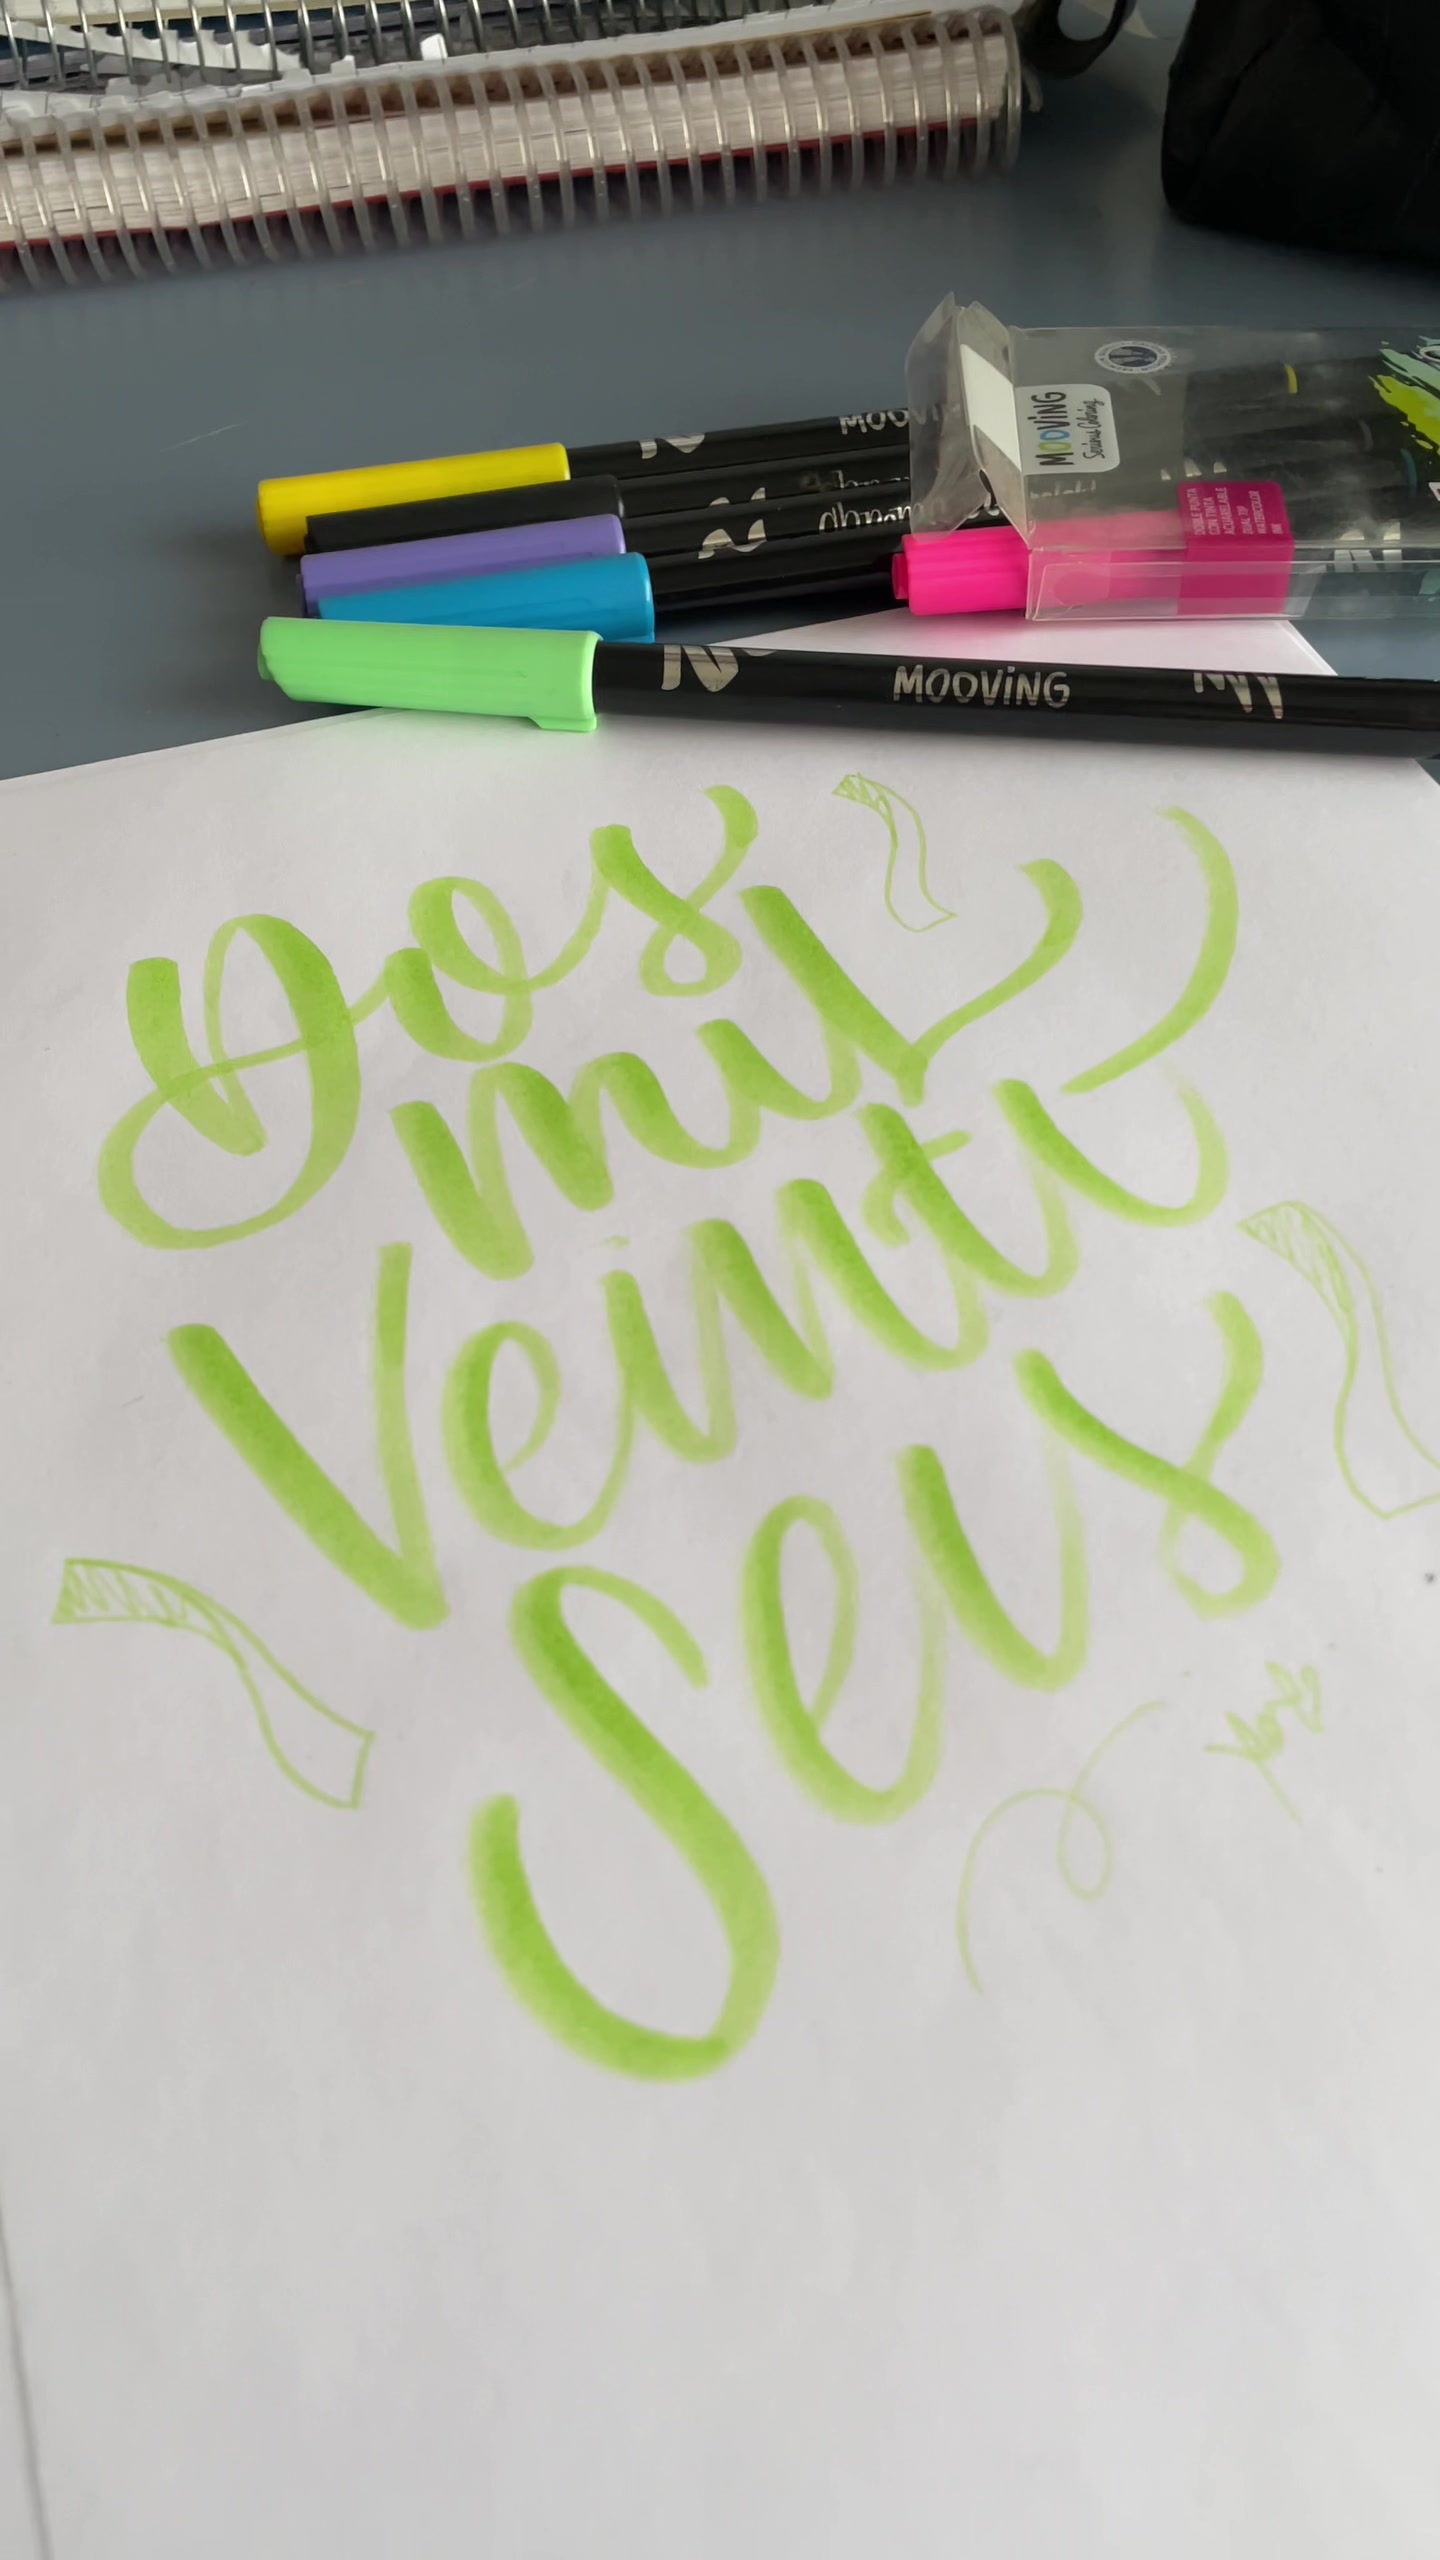 MOOVING
MOOVING
Serious Coloring
DOBLE PUNTA
CON TINTA
ACUARELABLE
DUAL TIP
WATERCOLOR
INK
MOOVING
Dos
mil
Veinti
Seis